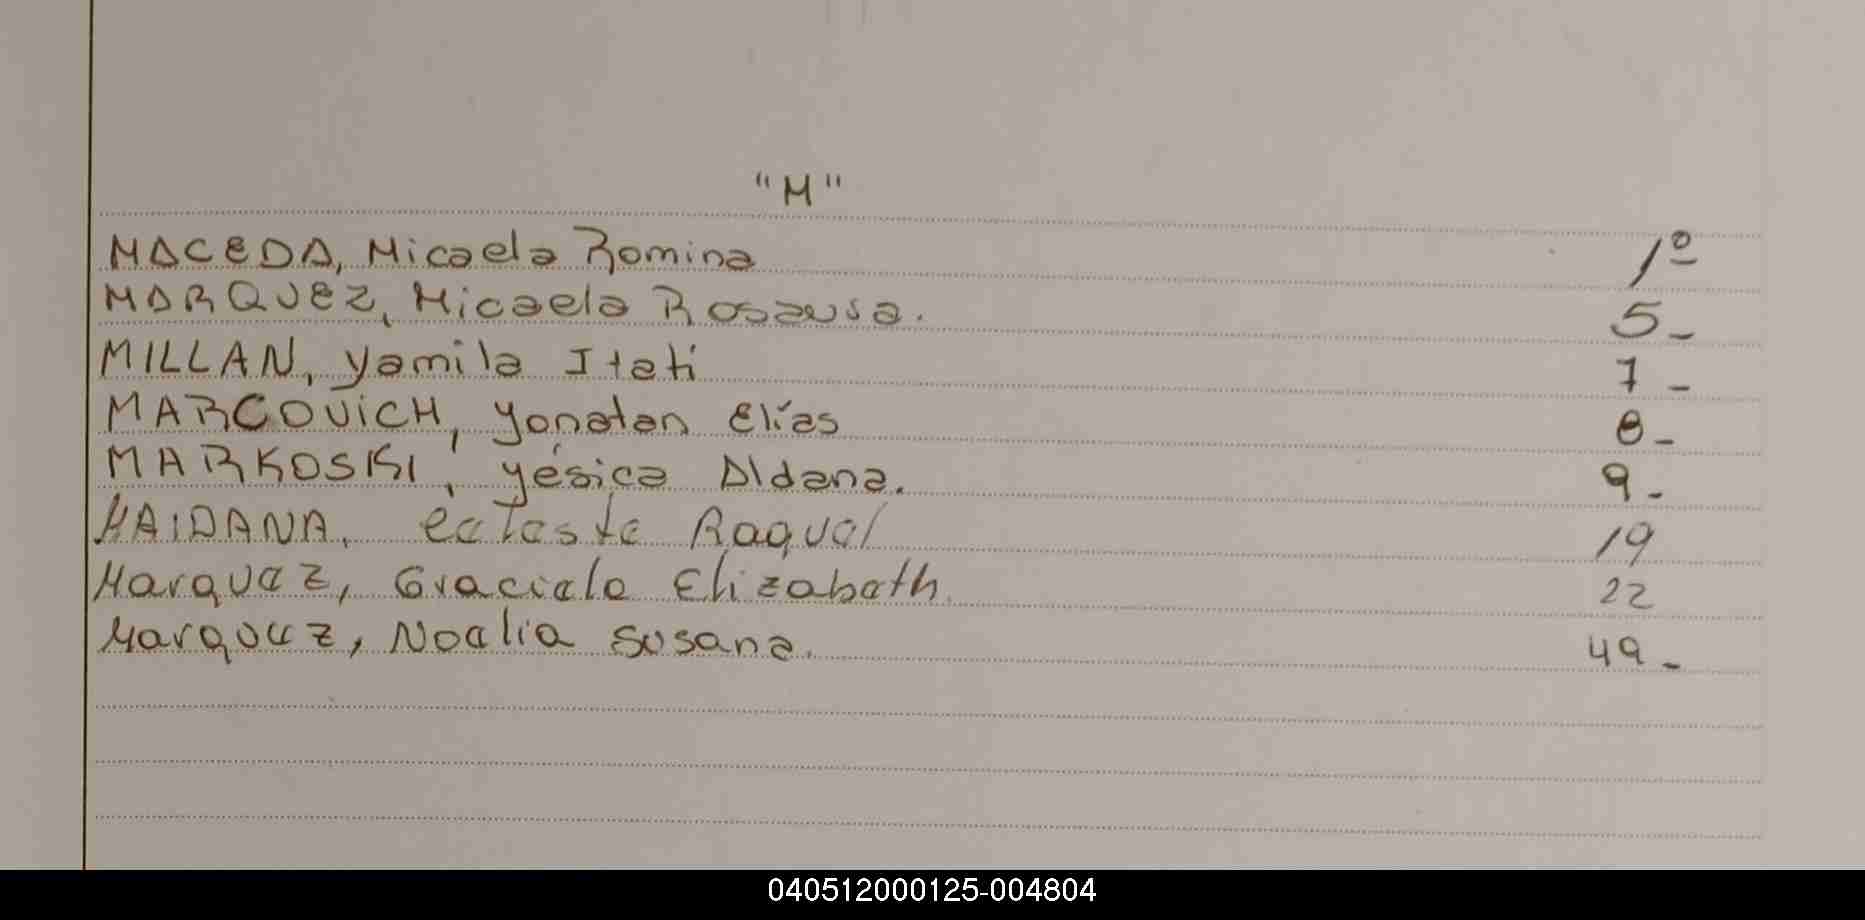 "M"
MACEDA, Micaela Romina 1º
MARQUEZ, Micaela Rosaura. 5-
MILLAN, Yamila Itati 7-
MARCOVICH, Yonatan Elías 8-
MARKOSKI, Yésica Aldana. 9-
MAIDANA, Celeste Raquel 19
Marquez, Graciela Elizabeth 22
Marquez, Noelia Susana. 49-
040512000125-004804